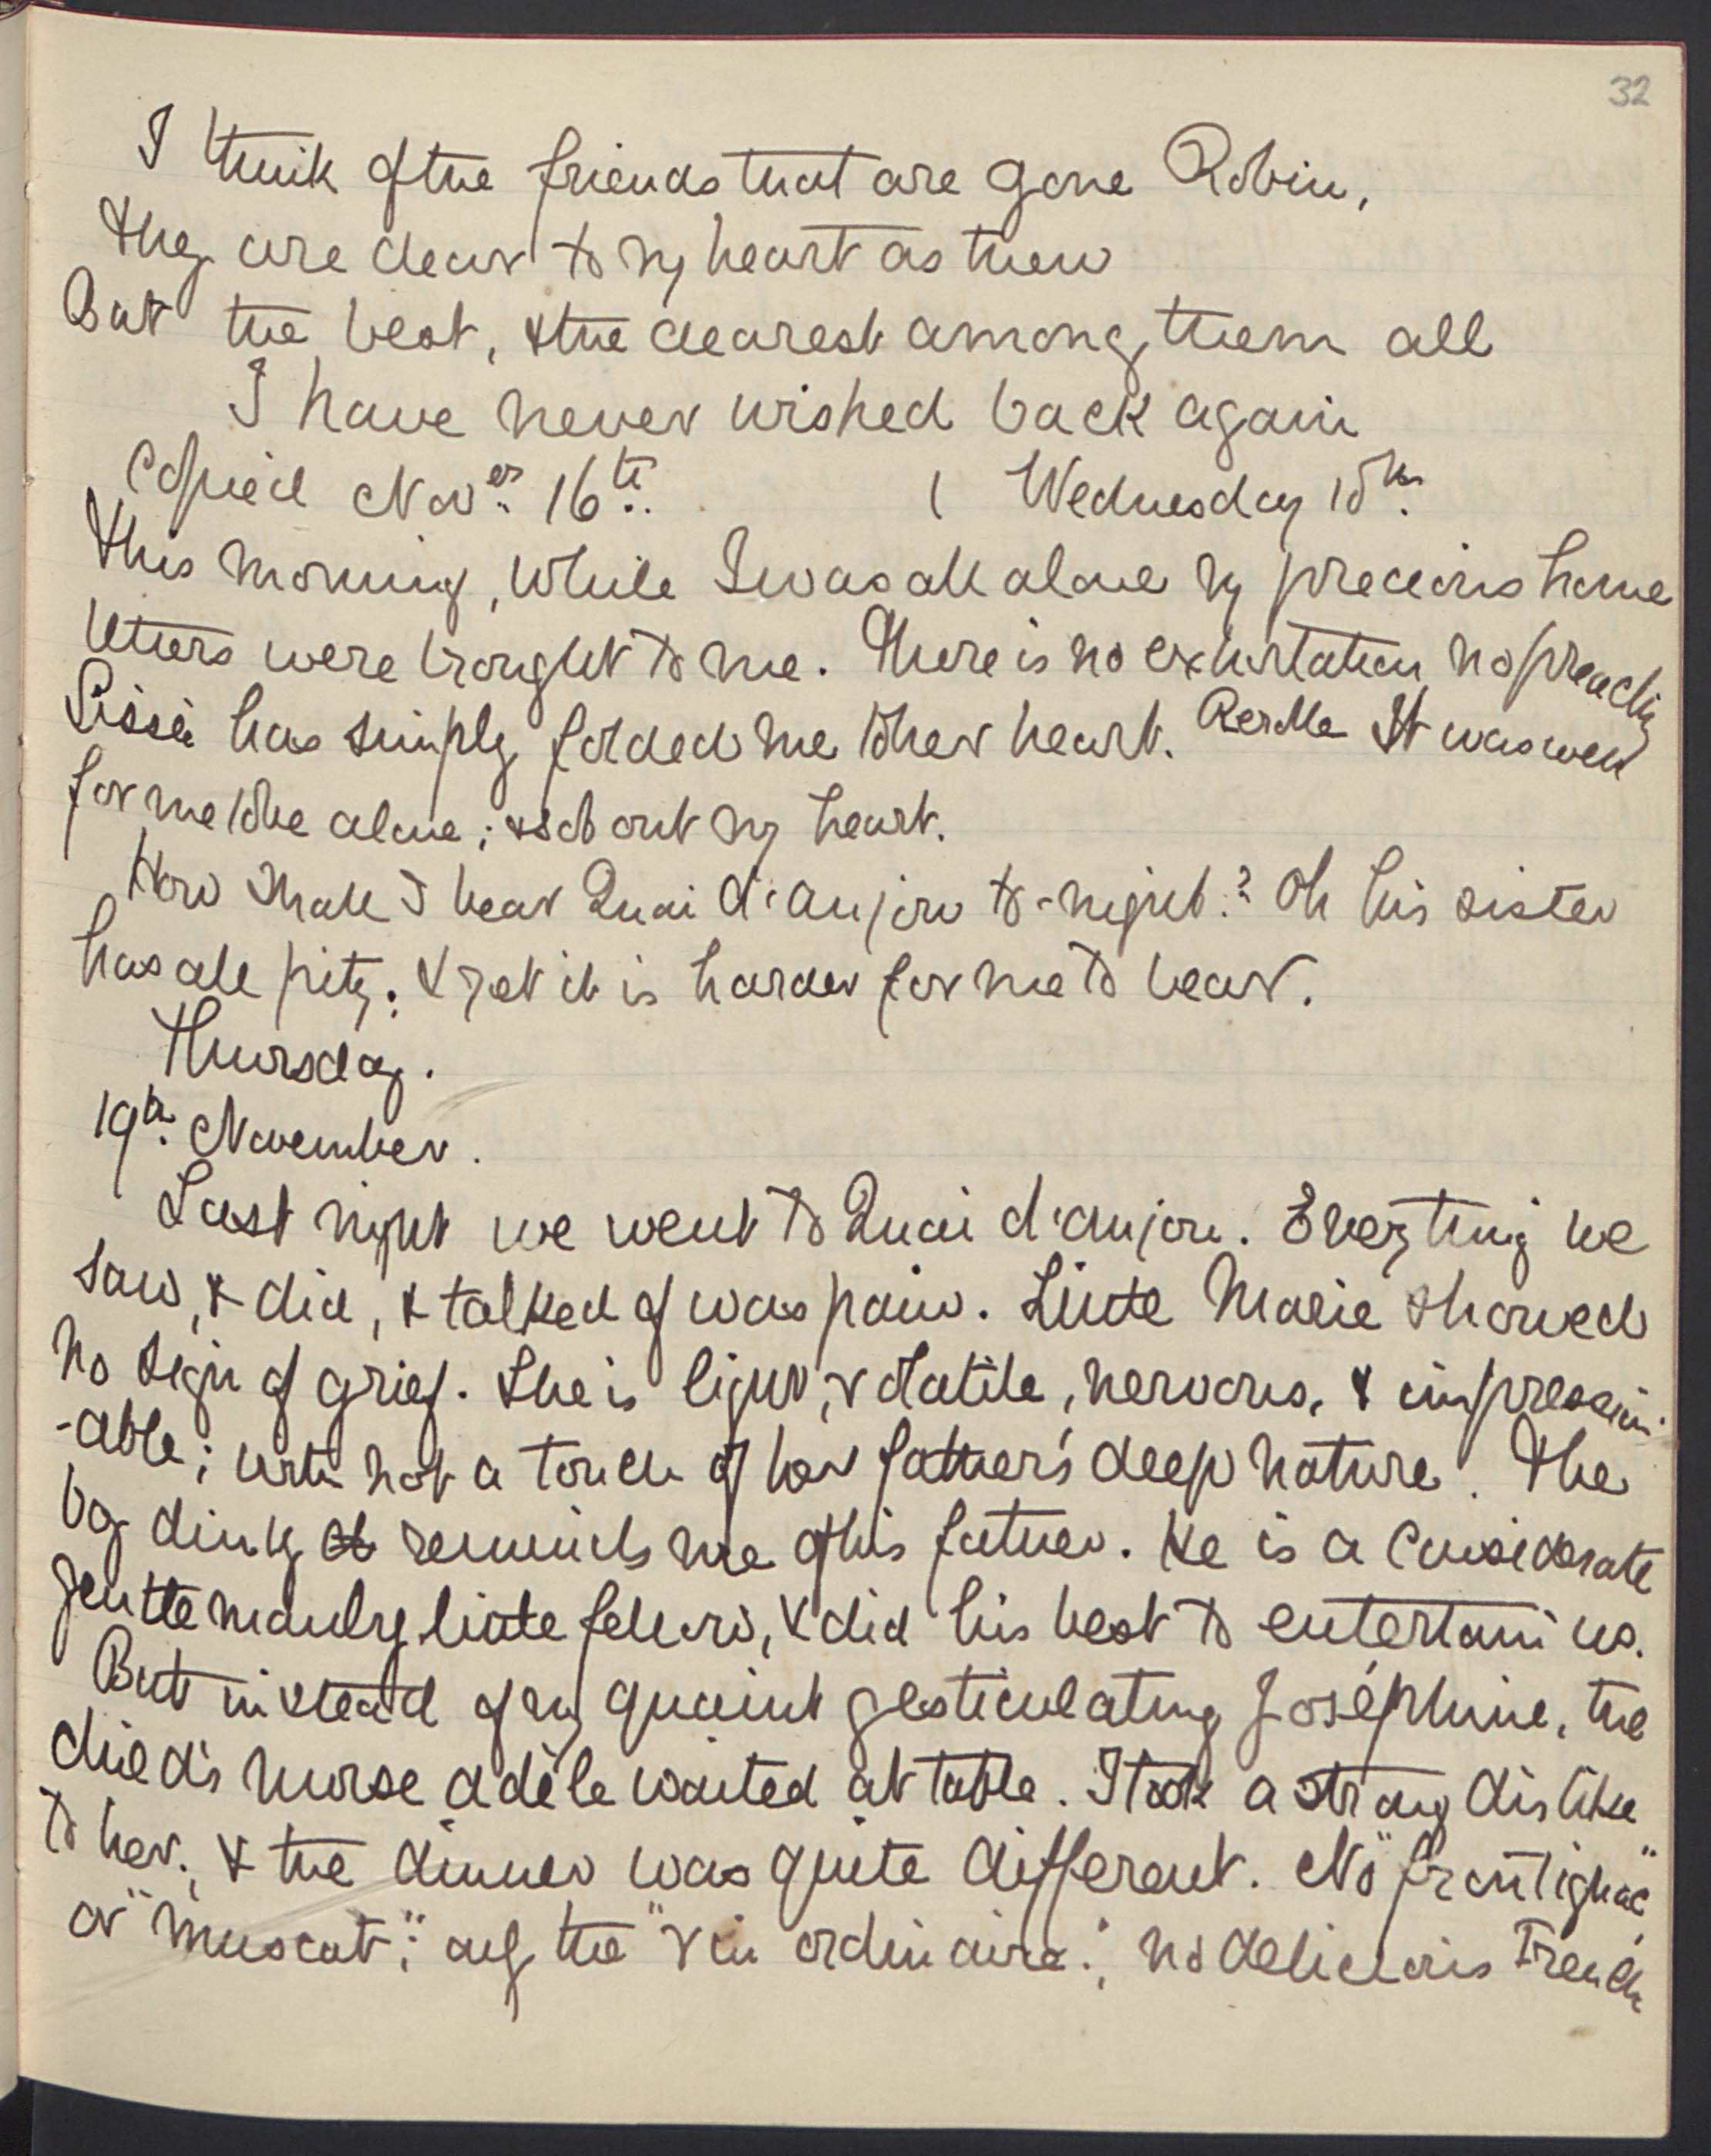 32
I think of the friends that are gone Robin,
They are dear to my heart as then
But the best, & the dearest among them all
I have never wished back again
Copied Nov.er 16th.. ( Wednesday 18th.
This morning, while I was all alone my precious home
letters were brought to me. There is no exhortation no preaching
Lissie has simply folded me to her heart. It was well
for me to be alone; & sob out my heart.
How shall I bear Quai d'anjou to-night? Oh his sister
has all pity; & yet it is harder for me to bear.
Thursday.
19th. November.
Last night we went to Quai d'anjou. Everything we
saw, & did, & talked of was pain. Little Marie showed
no sign of grief. She is light, volatile, nervous, & impression
-able; with not a touch of her father's deep nature. The
boy dinky reminds me of his father. He is a considerate
gentlemanly little fellow, & did his best to entertain us.
But instead of my quaint gesticulating Joséphine, the
child's nurse adèle waited at table. I took a strong dislike
to her; & the dinner was quite different. No "frontignac"
or "muscat"; only the "vin ordinaire"; no delicious French